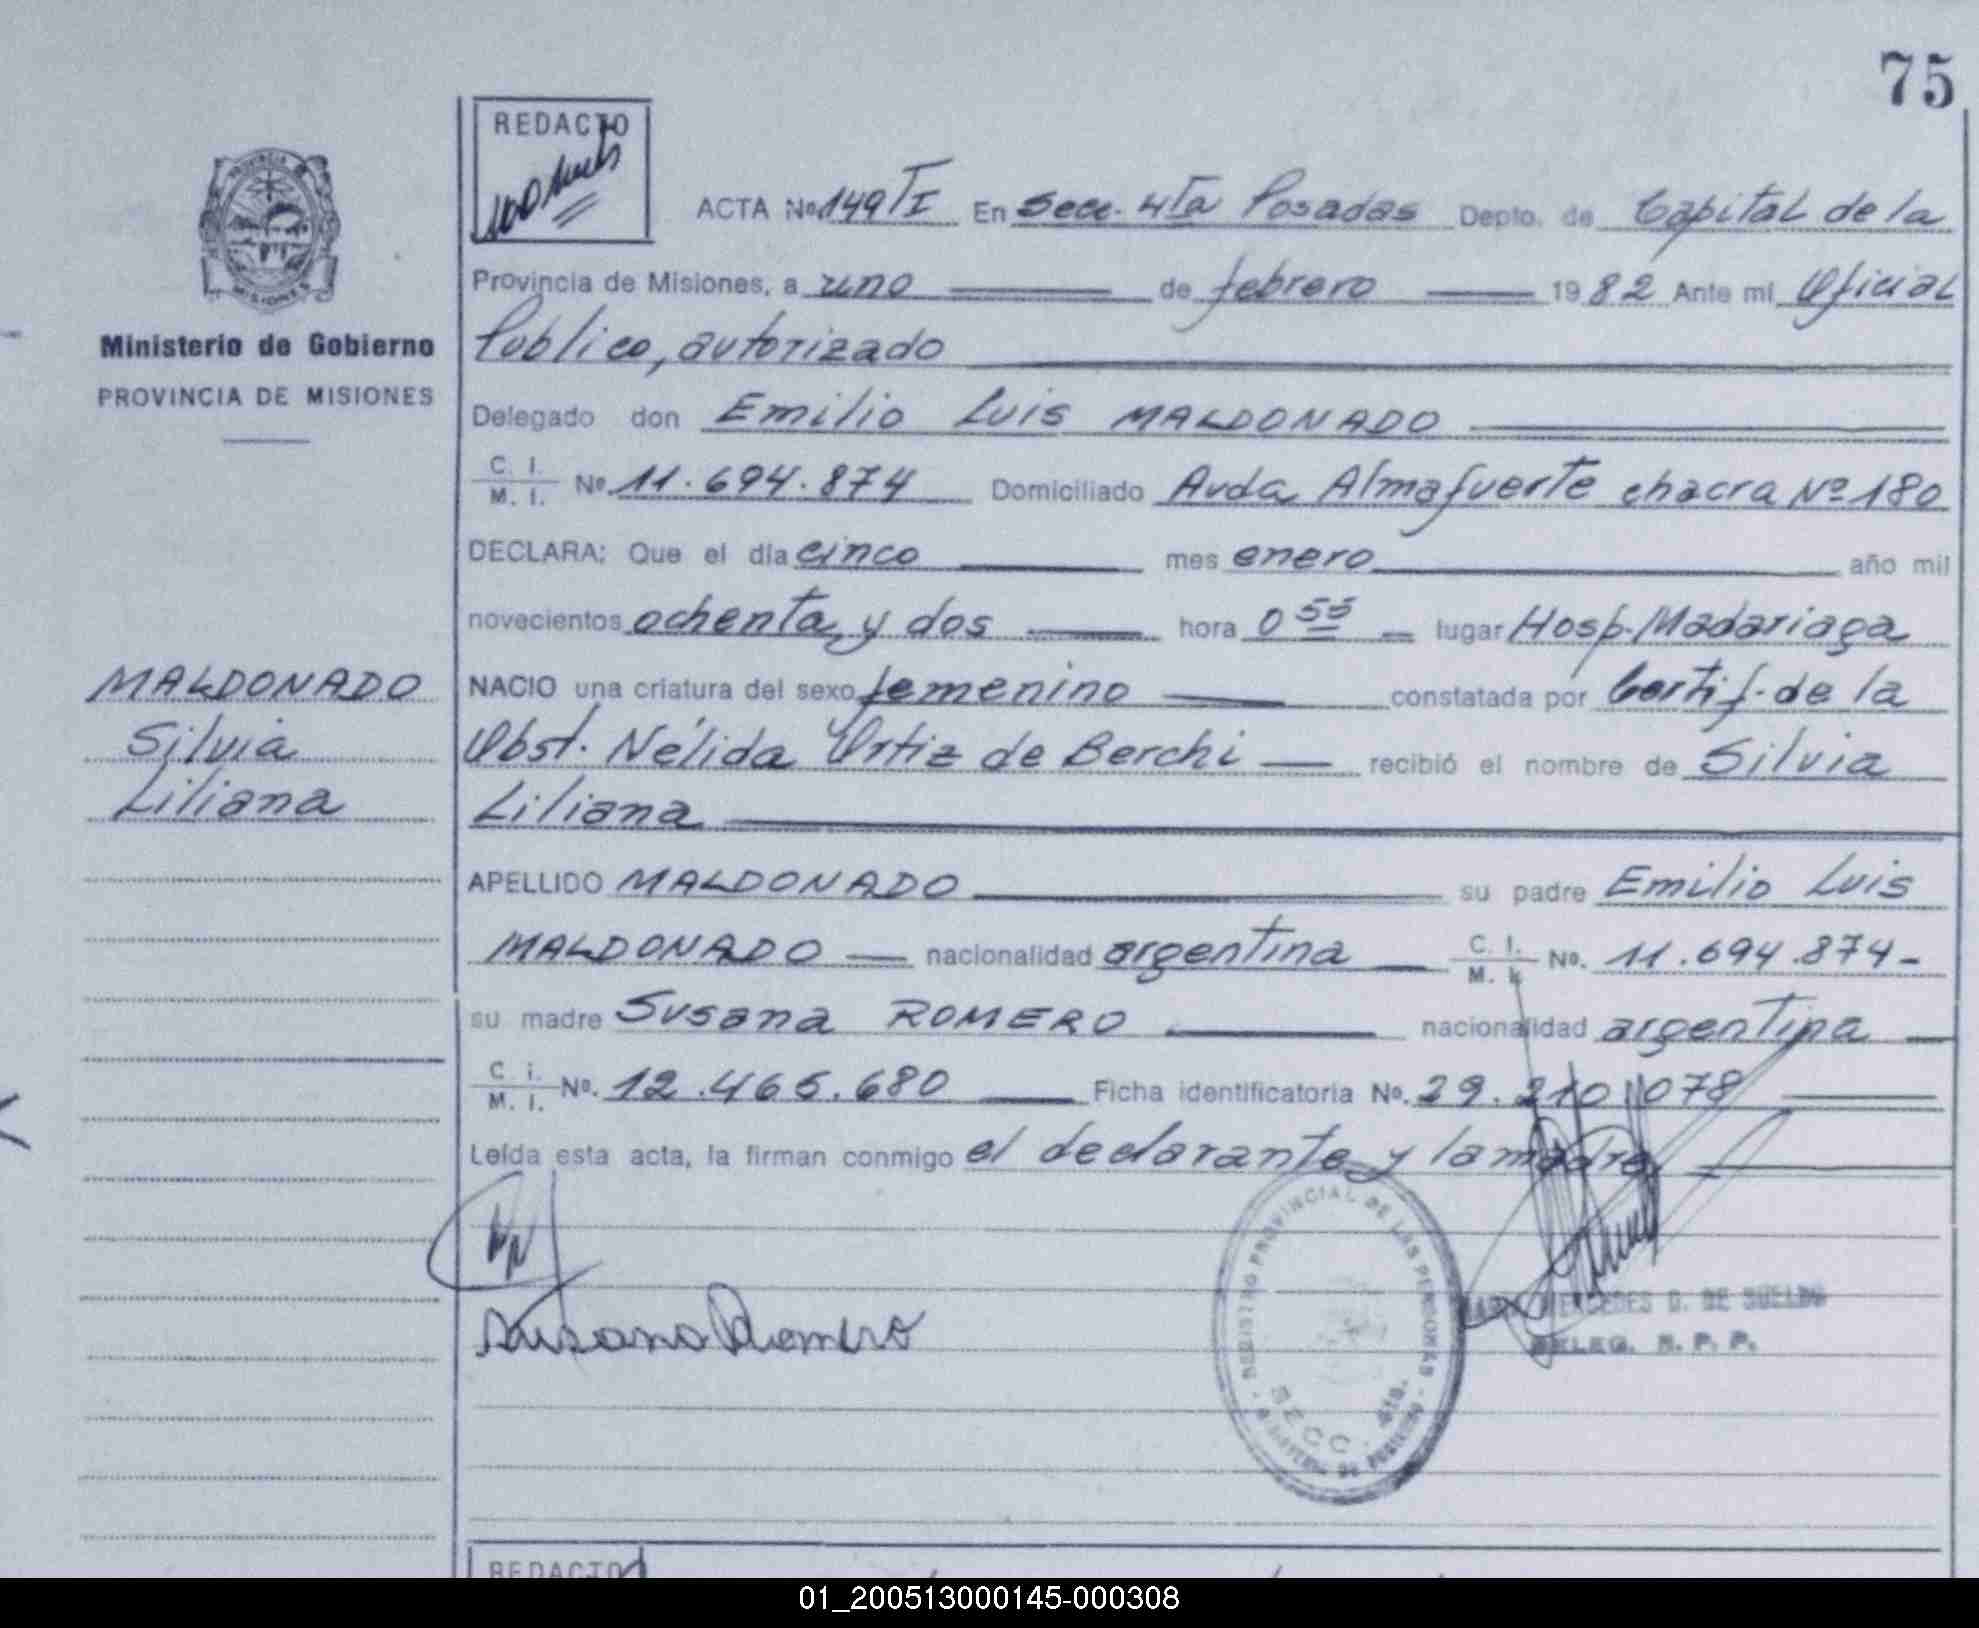 75
REDACTO
ACTA Nº 149 TI En Secc. 4Ta Posadas Depto. de Capital de la
Provincia de Misiones, a uno de febrero 1982 Ante mi Oficial
Público, autorizado
Ministerio de Gobierno
PROVINCIA DE MISIONES
Delegado don Emilio Luis MALDONADO
C. I. / M. I. Nº 11.694.874 Domiciliado Avda Almafuerte chacra Nº 180
DECLARA: Que el día cinco mes enero año mil
novecientos ochenta y dos hora 0 55 lugar Hosp. Madariaga
MALDONADO
Silvia
Liliana
NACIO una criatura del sexo femenino constatada por Certif. de la
Obst. Nélida Ortiz de Berchi recibió el nombre de Silvia
Liliana
APELLIDO MALDONADO su padre Emilio Luis
MALDONADO nacionalidad argentina C. I. / M. I. No. 11.694.874-
su madre Susana ROMERO nacionalidad argentina
C. i. / M. I. Nº. 12.465.680 Ficha identificatoria No. 29.210.078
Leída esta acta, la firman conmigo el declarante y la madre
Susana Romero
REGISTRO PROVINCIAL DE LAS PERSONAS
SECC. 4ta.
MERCEDES D. DE SUELDO
DELEG. R. P. P.
REDACTO
01_200513000145-000308